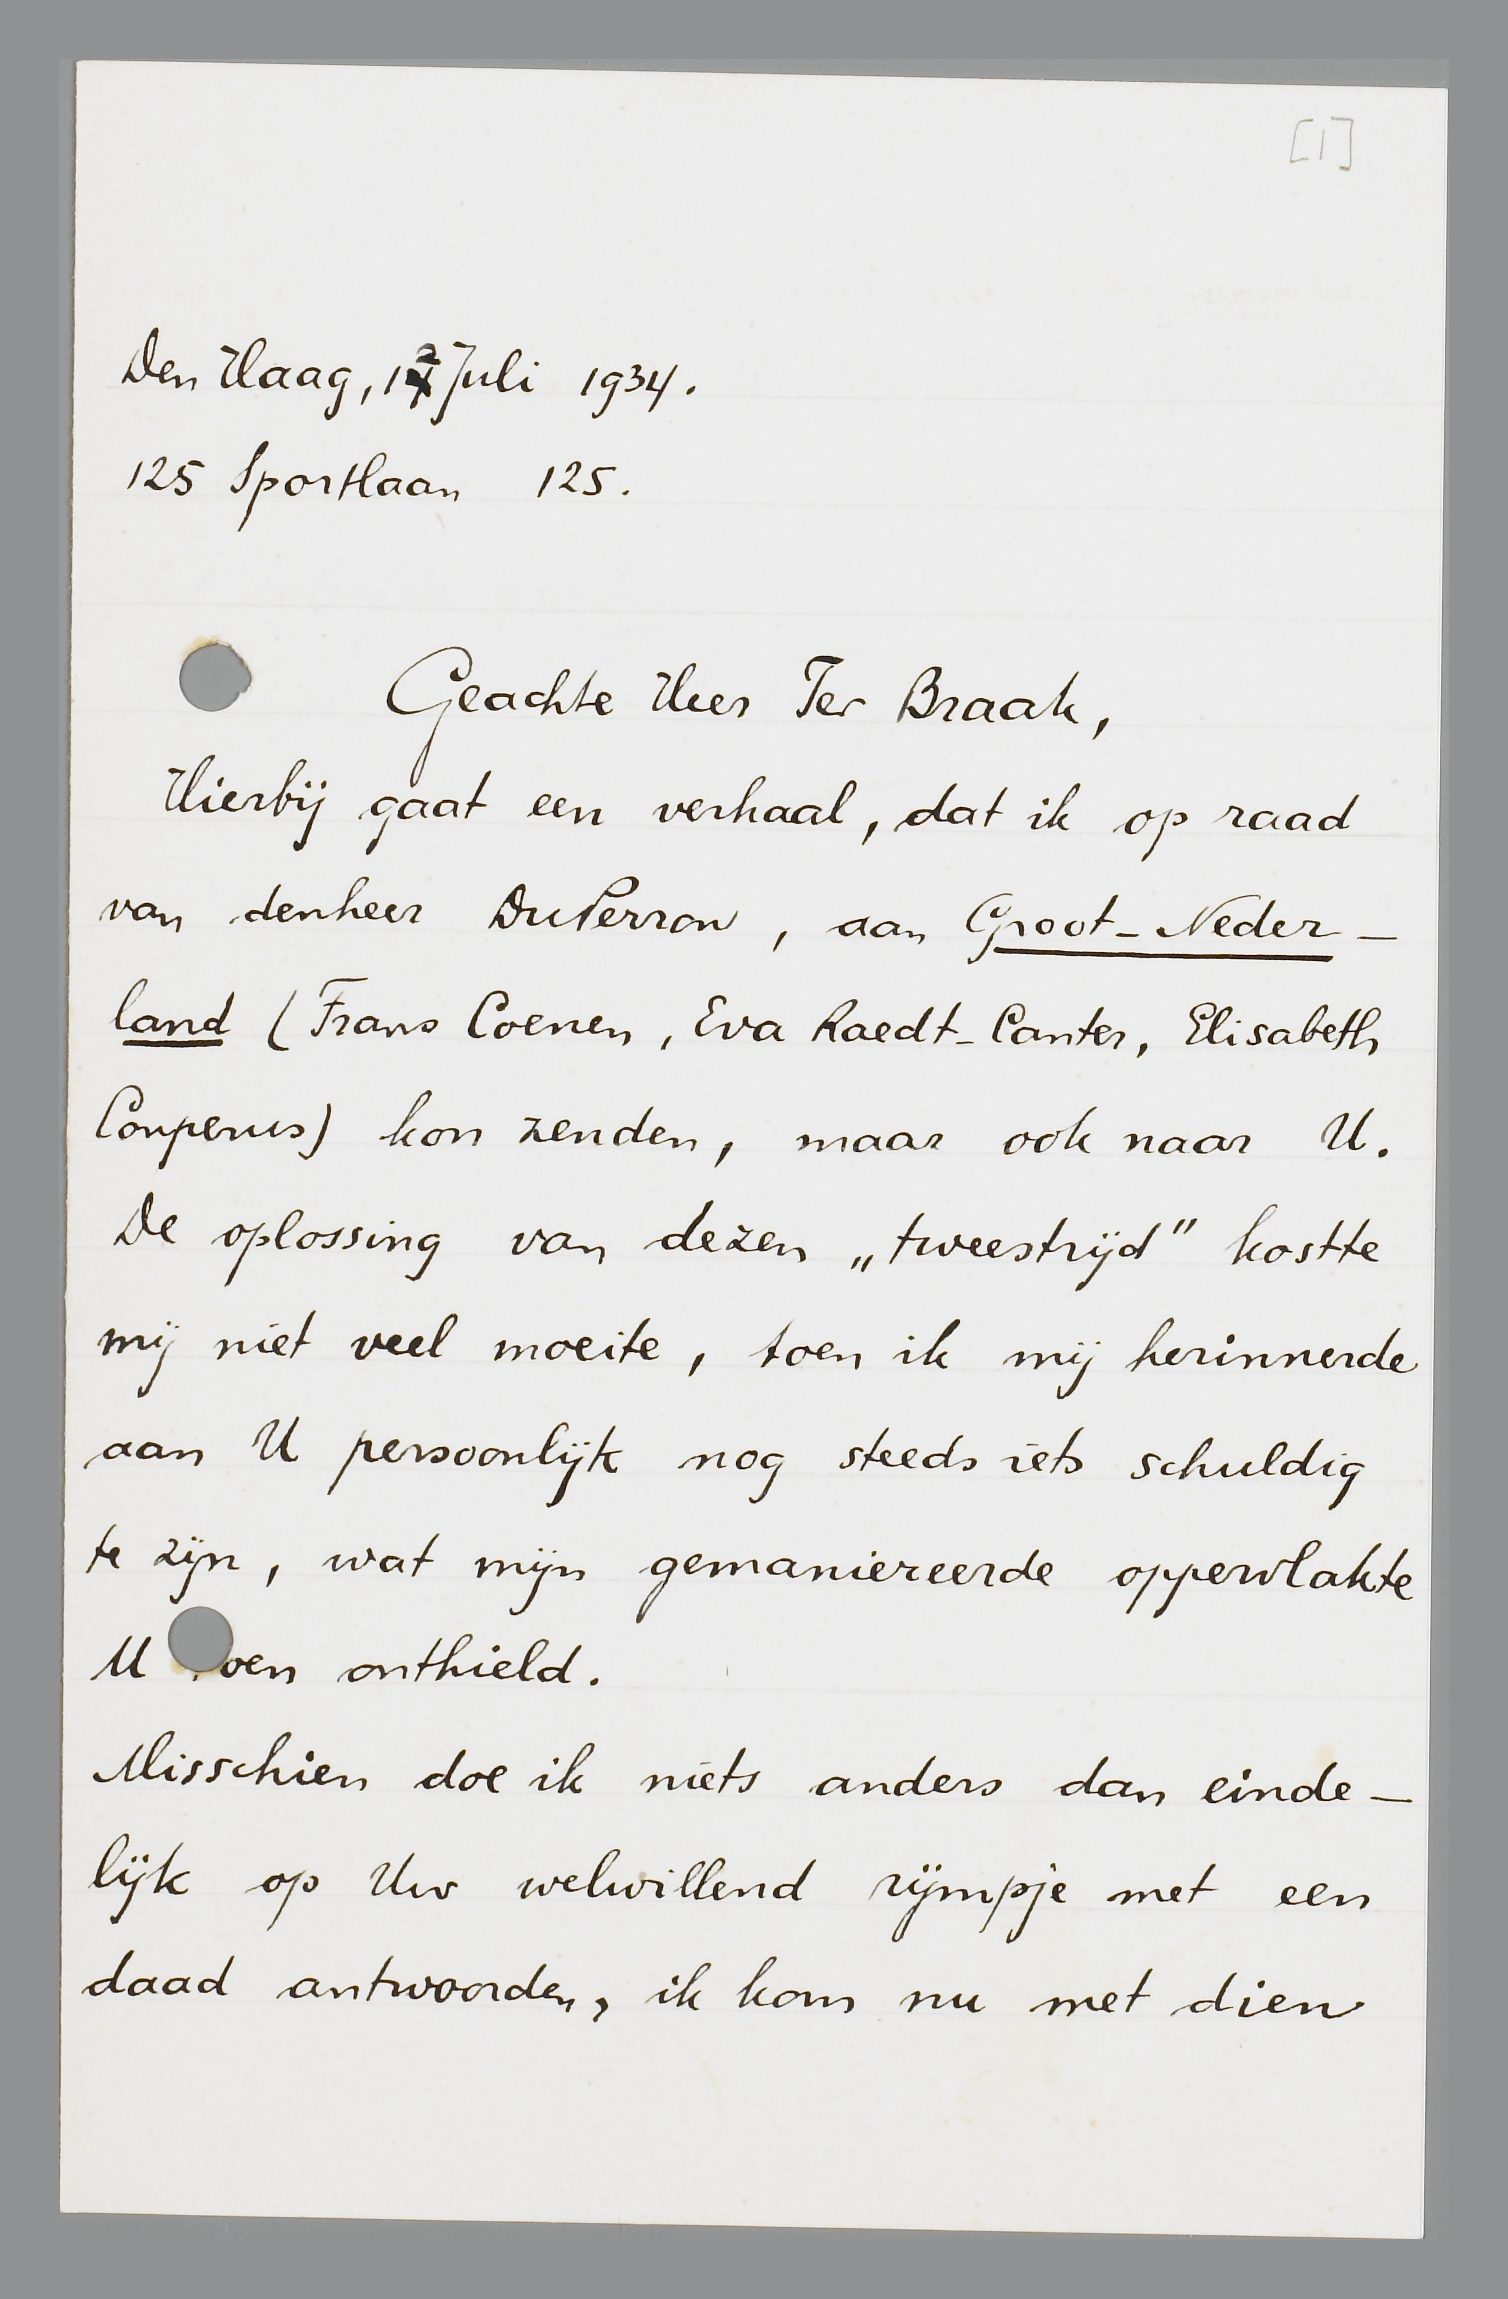 [1]
Den Haag, 12 Juli 1934.
125 Sportlaan 125.
Geachte Heer Ter Braak,
Hierbij gaat een verhaal, dat ik op raad
van denheer DuPerron, aan Groot-Neder-
land (Frans Coenen, Eva Raedt-Canter, Elisabeth
Couperus) kon zenden, maar ook naar U.
De oplossing van dezen „tweestrijd" kostte
mij niet veel moeite, toen ik mij herinnerde
aan U persoonlijk nog steeds iets schuldig
te zijn, wat mijn gemaniereerde oppervlakte
U toen onthield.
Misschien doe ik niets anders dan einde-
lijk op Uw welwillend rijmpje met een
daad antwoorden, ik kom nu met dien